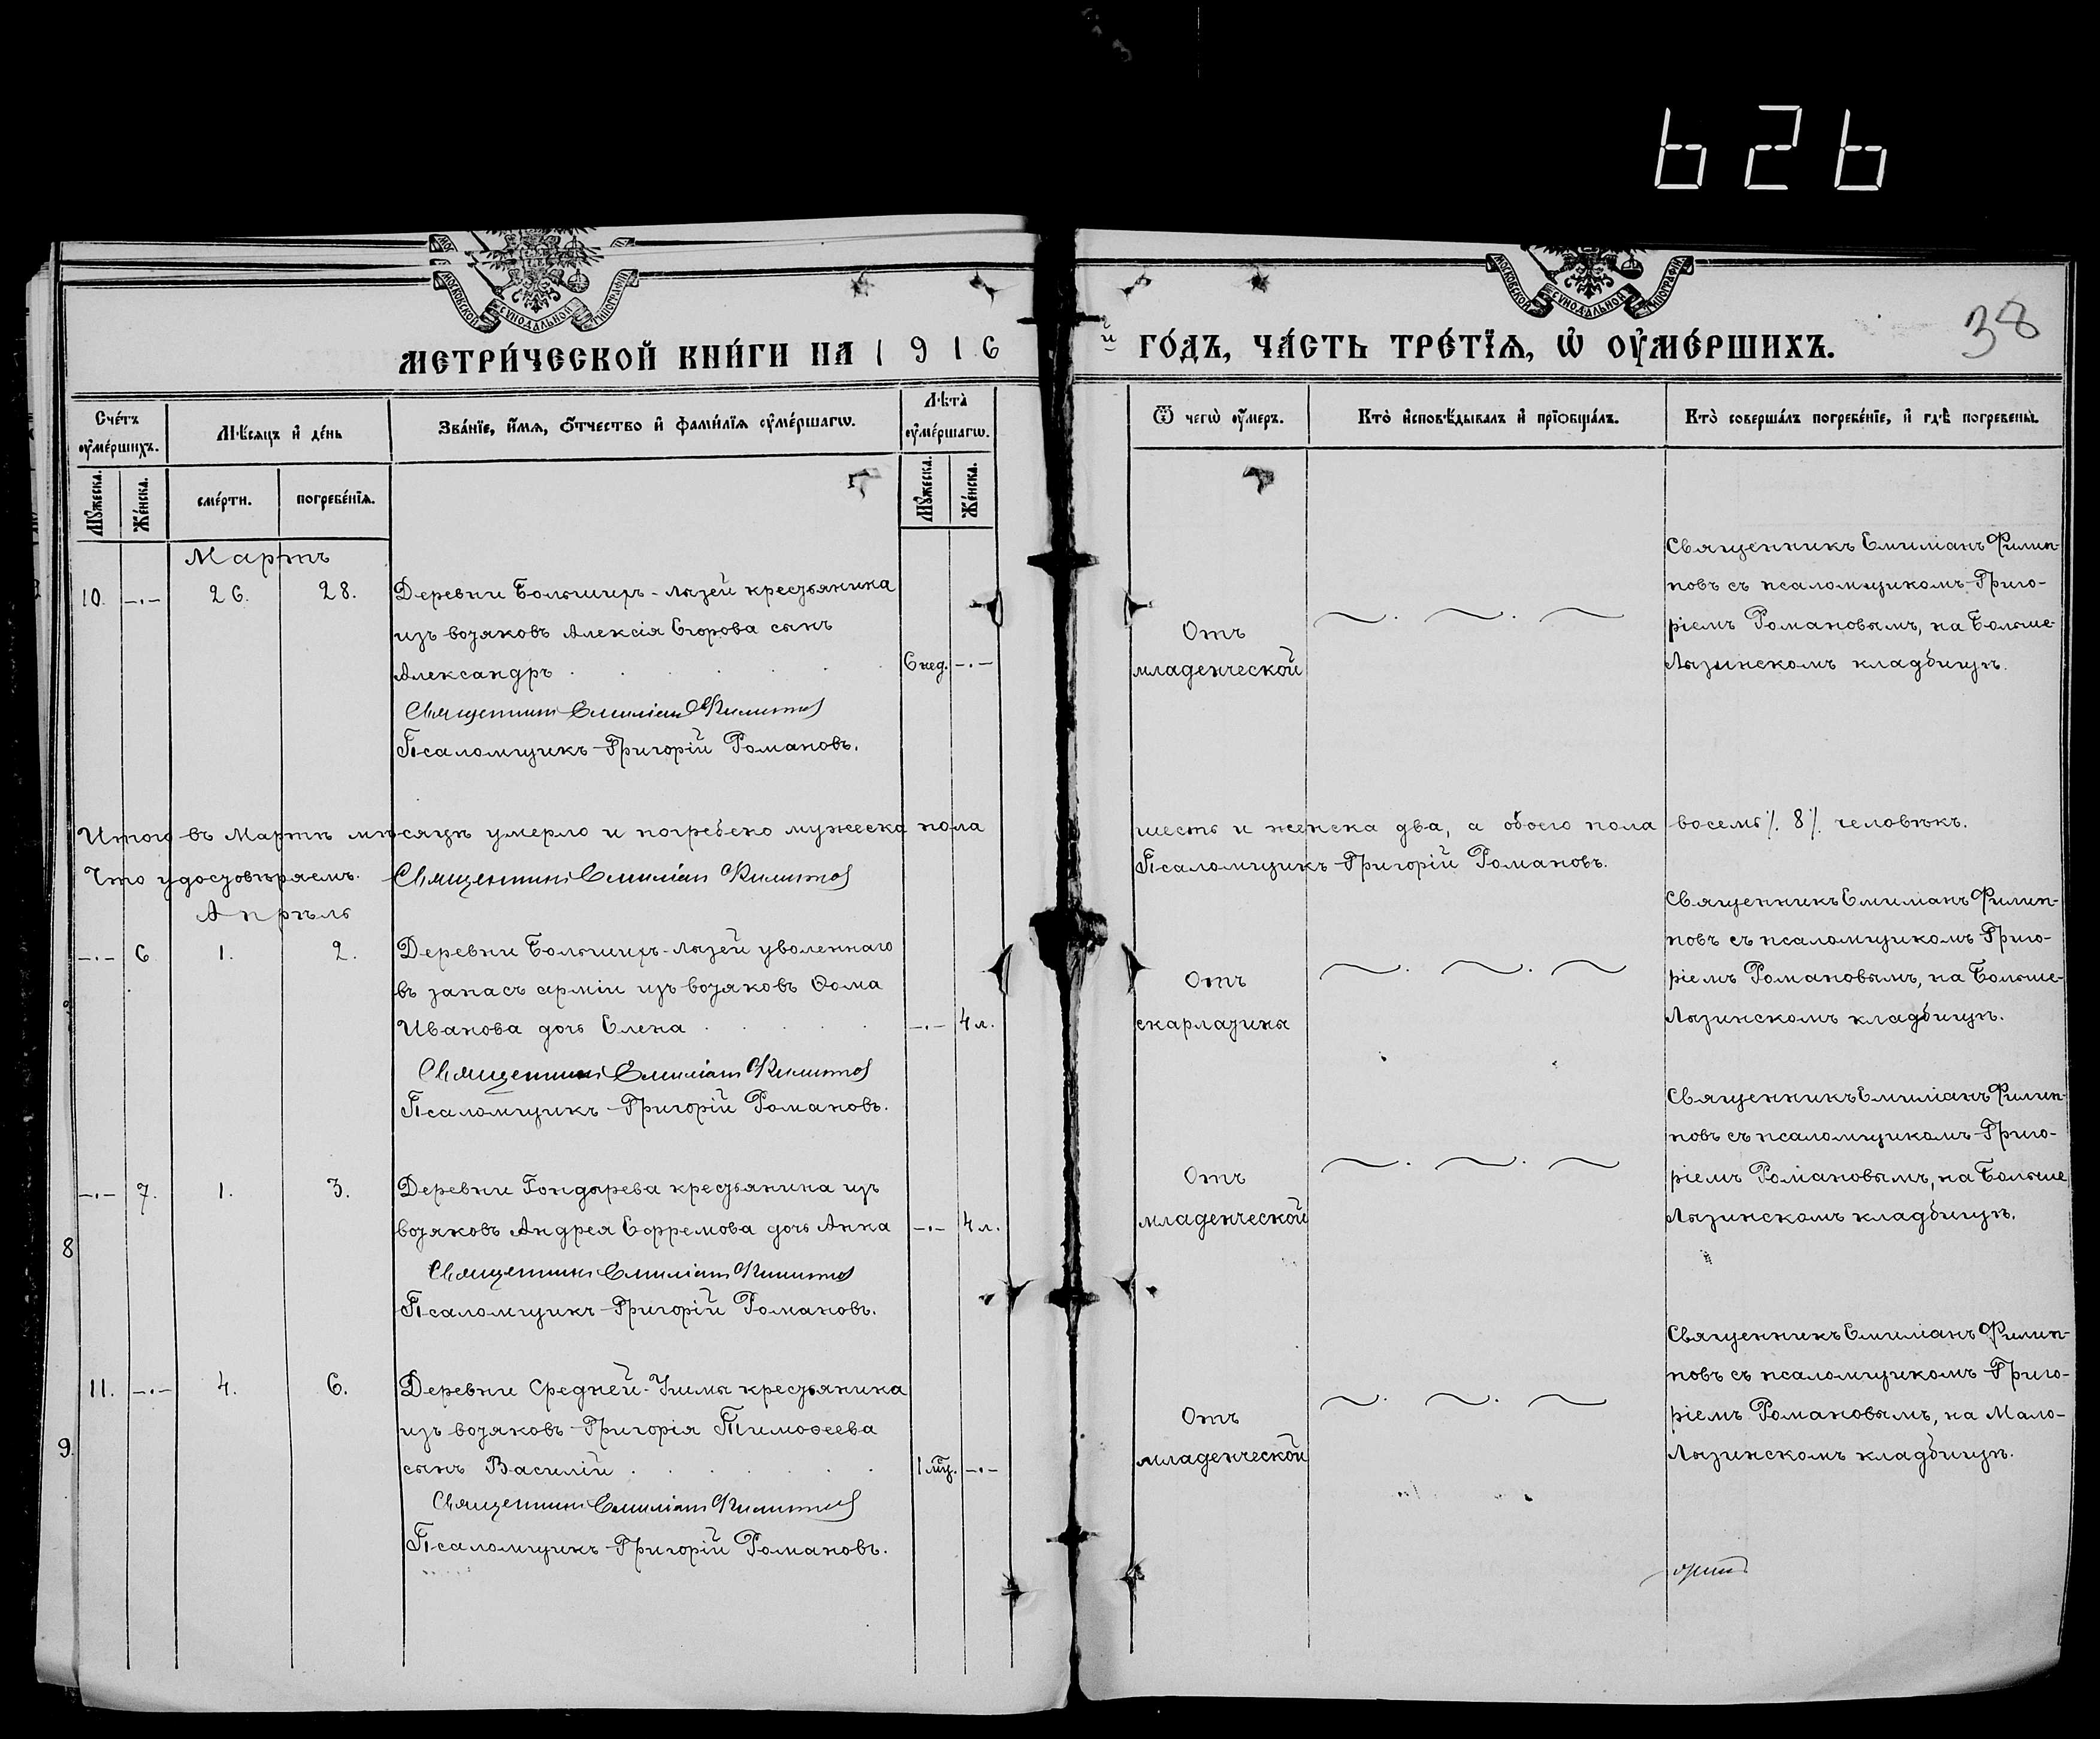 626
МОСКОВСКОЙ СѴНОДАЛЬНОЙ ТИПОГРАФІИ
МОСКОВСКОЙ СѴНОДАЛЬНОЙ ТИПОГРАФІИ
38
МЕТРИ́ЧЕСКОЙ КНИ́ГИ НА 1916
й ГО́ДЪ, ЧА́СТЬ ТРЕ́ТІЯ, Ѡ҆ ОУ҆МЕ́РШИХЪ.
Сче́тъ оу҆ме́ршихъ.
Мѣ́сяцъ и҆ де́нь
Зва́нїе, и҆́мя, ѻ҆́тчество и҆ фами́лїя оу҆ме́ршагѡ.
Лѣ́та оу҆ме́ршагѡ.
Ѿ чегѡ̀ оу҆́меръ.
Кто̀ и҆сповѣ́дывалъ и҆ прїѡбща́лъ.
Кто̀ соверша́лъ погребе́нїе, и҆ гдѣ̀ погребены̀.
Мꙋ́жеска.
Же́нска.
сме́рти.
погребе́нїя.
Мꙋ́жеска.
Же́нска.
Мартъ
10. -.- 26. 28. Деревни Большихъ-Лызей крестьянина
изъ вотяковъ Алексія Егорова сынъ
Александръ . . . . . 6 нед. -.-
Священникъ Емиліанъ Филиповъ
Псаломщикъ Григорій Романовъ.
Отъ
младенческой
Священникъ Емиліанъ Филип-
повъ съ псаломщикомъ Григо-
ріемъ Романовымъ, на Больше-
Лызинскомъ кладбищѣ.
Итого въ Мартѣ мѣсяцѣ умерло и погребено мужеска пола шесть и женска два, а обоего пола восемь /. 8 /. человѣкъ.
Что удостовѣряемъ. Священникъ Емиліанъ Филиповъ
Псаломщикъ Григорій Романовъ.
Апрѣль
-.- 6 1. 2. Деревни Большихъ-Лызей уволеннаго
въ запасъ арміи изъ вотяковъ Ѳома
Иванова дочь Елена . . . . . -.- 4 л.
Священникъ Емиліанъ Филиповъ
Псаломщикъ Григорій Романовъ.
Отъ
скарлатины
Священникъ Емиліанъ Филип-
повъ съ псаломщикомъ Григо-
ріемъ Романовымъ, на Больше-
Лызинскомъ кладбищѣ.
-.- 7. 1. 3. Деревни Гондырева крестьянина изъ
вотяковъ Андрея Ефремова дочь Анна -.- 4 л.
Священникъ Емиліанъ Филиповъ
Псаломщикъ Григорій Романовъ.
Отъ
младенческой
Священникъ Емиліанъ Филип-
повъ съ псаломщикомъ Григо-
ріемъ Романовымъ, на Больше
Лызинскомъ кладбищѣ.
8
11. -.- 4. 6. Деревни Средней-Ушмы крестьянина
изъ вотяковъ Григорія Тимоѳеева
сынъ Василій . . . . . . 1 мц. -.-
Священникъ Емиліанъ Филиповъ
Псаломщикъ Григорій Романовъ.
Отъ
младенческой
Священникъ Емиліанъ Филип-
повъ съ псаломщикомъ Григо-
ріемъ Романовымъ, на Мало-
Лызинскомъ кладбищѣ.
9.